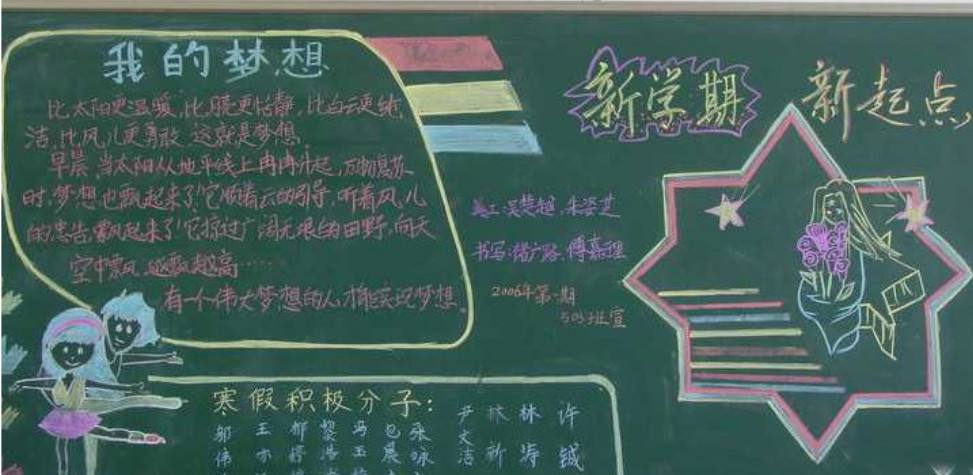 我的梦想
比太阳更温暖,比 更恬静,比白云更纯
洁,比风儿更勇敢 这就是梦想.
早晨,当太阳从地平线上冉冉升起,万物复苏
时,梦想也飘起来了它顺着云的引导,听着风儿
的忠告,飘起来了它掠过广阔无垠的田野,向天
空中飘,越飘越高……
有一个伟大梦想的人,才能实现梦想
新学期 新起点
美工:吴楚越.朱
书写:褚广路.傅嘉理
2006年第一期
503班宣
寒假积极分子:
王 郁 黎 冯 包 张 尹 林 林 许
伟 亦 婷 浩 玉 晨 咏 文 新 涛 铖
洁